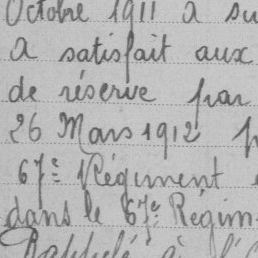 Octobre 1911 a su
A satisfait aux
de réserve par
26 Mars 1912
67e Régiment
dans le 67e Régim
Rappelé à l'